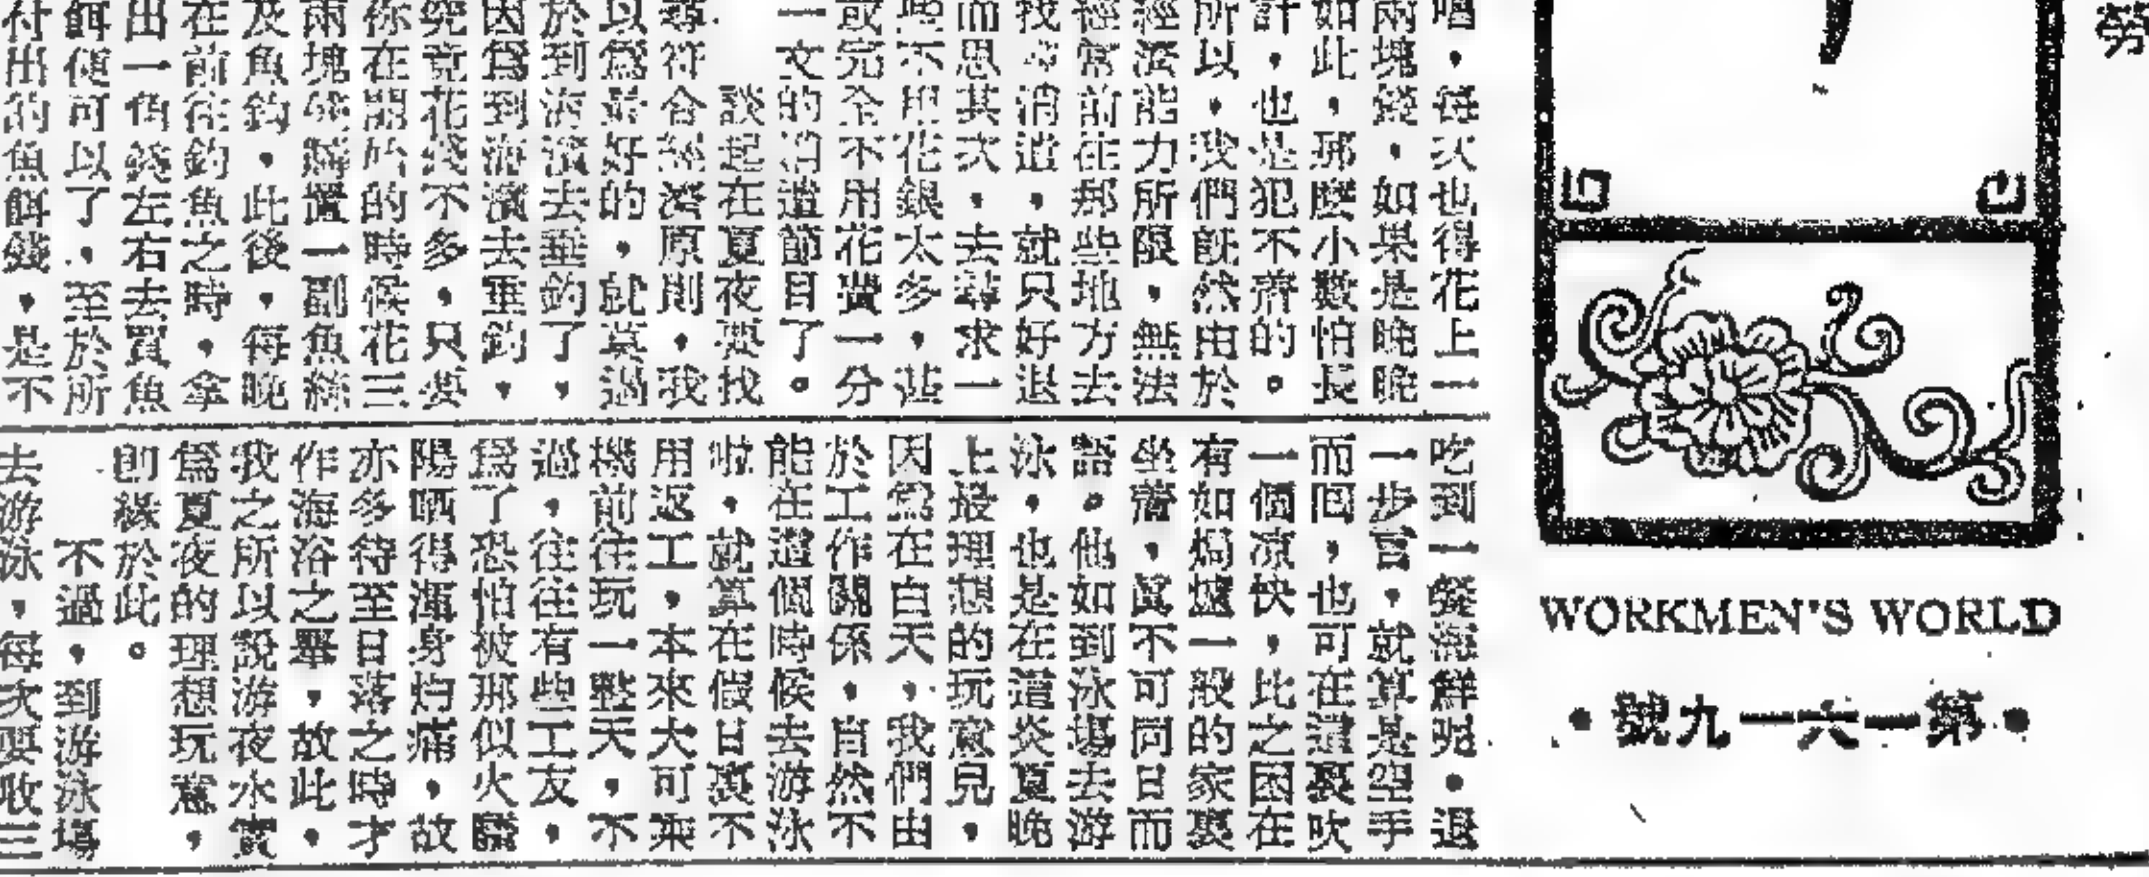 勞
WORKMEN'S WORLD
•第一六一九號•
唱，每次也得花上一
兩塊錢，如果是晚晚
如此，那麼小數怕長
計，也是犯不着的。
所以，我們既然由於
經濟能力所限，無法
經常前往那些地方去
找尋消遣，就只好退
而思其次，去尋求一
些不用花銀太多，甚
或完全不用花費一分
一文的消遣節目了。
談起在夏夜要找
尋符合經濟原則，我
以爲最好的，就莫過
於到海濱去垂釣了，
因爲到海濱去垂釣，
究竟花錢不多，只要
你在開始的時候花三
兩塊錢購置一副魚絲
及魚鈎，此後，每晚
在前往釣魚之時，拿
出一角錢左右去買魚
餌便可以了，至於所
付出的魚餌錢，是不
吃到一餐海鮮呢，退
一步言，就算是空手
而回，也可在這裏吹
一個凉快，此之困在
有如焗爐一般的家裏
坐着，眞不可同日而
語。他如到泳場去游
泳，也是在這炎夏晚
上最理想的玩意兒，
因爲在白天，我們由
於工作關係，自然不
能在這個時候去游泳
啦，就算在假日裏不
用返工，本來大可乘
機前往玩一整天，不
過，往往有些工友，
爲了恐怕被那似火驕
陽晒得渾身灼痛，故
亦多待至日落之時才
作海浴之舉，故此，
我之所以說游夜水實
爲夏夜的理想玩意，
創緣於此。
不過，到游泳場
去游泳，每次要收三